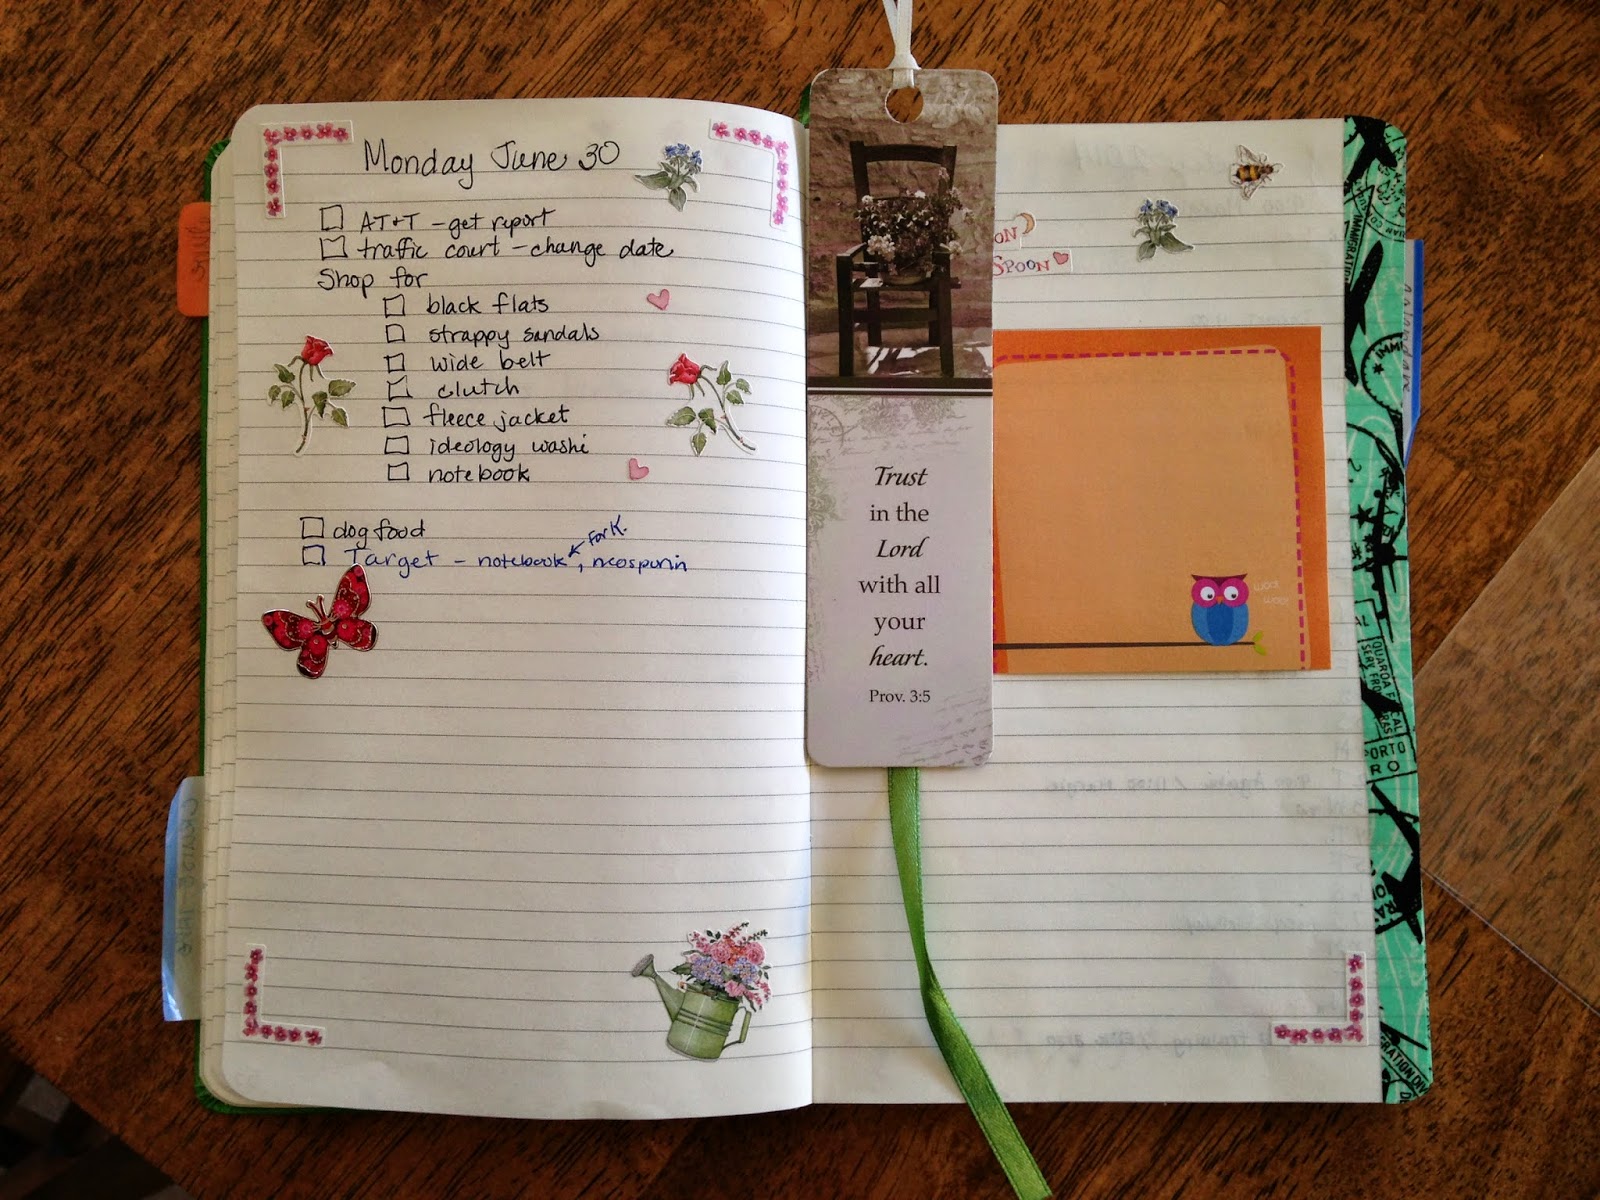 Monday June 30
AT+T - get report
traffic court - change date
Shop for
black flats
strappy sandals
wide belt
clutch
fleece jacket
ideology washi
notebook
dog food
for K.
Target - notebook, neosporin
Trust
in the
Lord
with all
your
heart.
Prov. 3:5
ON
SPOON
woo
woo
IMMIGRATION
IMMI
PORTO